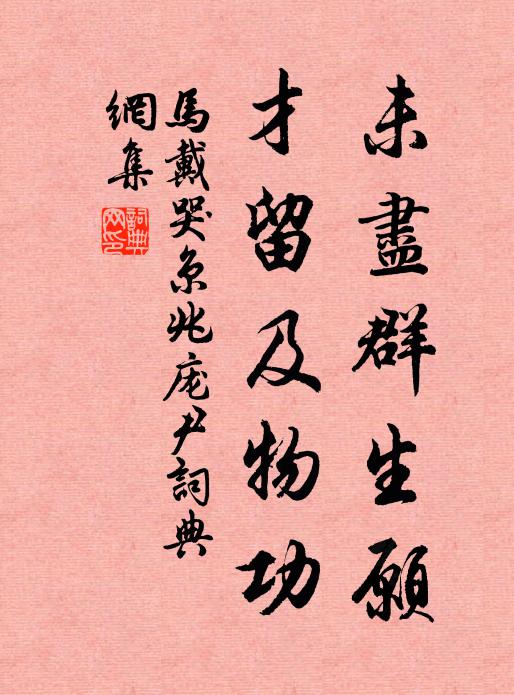 未盡群生願
才留及物功
馬戴哭京兆庞尹詞典
網集
詞典
网印